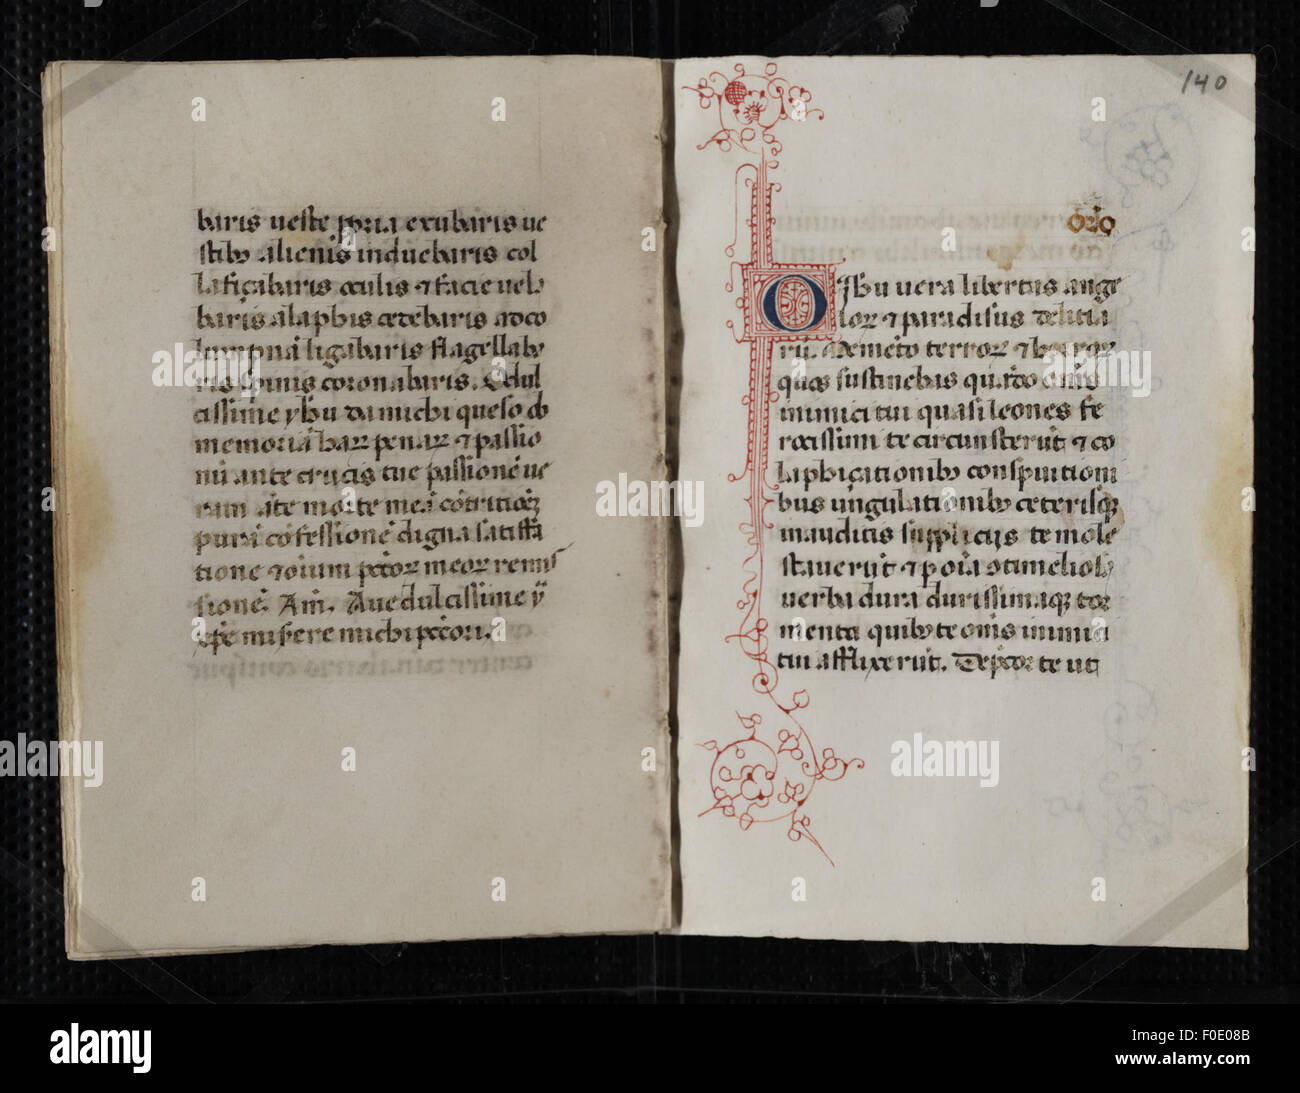 baris ueste ꝓpria exubaris ue
stibꝰ alienis induebaris col
lafiçabaris oculis ⁊ facie uela
baris alaphis cedebaris ad co
lumpnã ligabaris flagellabᵃ
ris spinis coronabaris. O dul
cissime yħu da michi queso ob
memoriã haꝝ penaꝝ ⁊ passio
nũ ante crucis tue passionẽ ue
ram ãte mortẽ meã cõtritionẽ
purã cõfessionẽ dignã satisfa
tionẽ ⁊ oĩum pctõꝝ meoꝝ remis
sionẽ. Am̃. Aue dulcissime yͧ
xp̃e miserere michi pctõri.
140
orõ
O Iħu uera libertas ange
loꝝ ⁊ paradisus delitia
rũ. Memẽto terroꝝ ⁊ horroꝝ
quos sustinebas quãdo oñis
inimici tui quasi leones fe
rocissimi te circumsterũt ⁊ co
laphiçationibꝰ conspuitioni
bus ũngulationibꝰ ceterisqꝫ
inauditis supplicijs te mole
stauerũt ⁊ ꝓ oĩa
uerba dura durissimaqꝫ tor
menta quibꝰ te oñis inimici
tui afflixerũt. Depcor te ut
alamy
Image ID: F0E08B
www.alamy.com